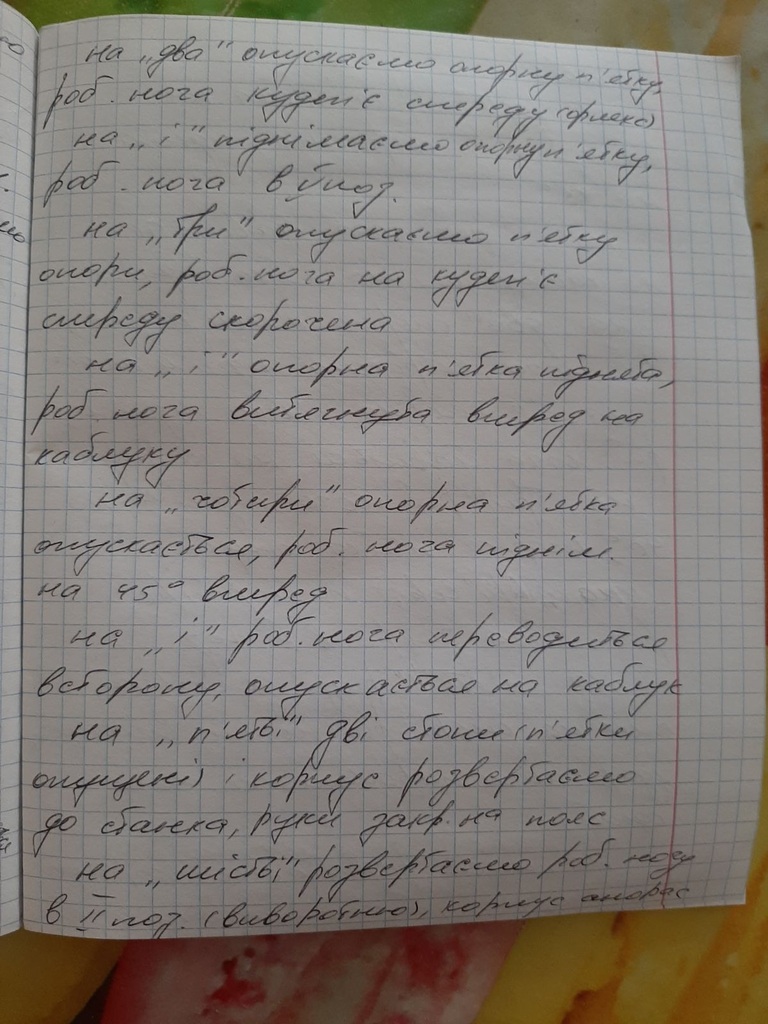 на „два" опускаємо опорну п'ятку,
роб. нога кудеп'є спереду (флекс)
на „і" піднімаємо опорну п'ятку,
роб. нога в V поз.
на „три" опускаємо п'ятку
опори, роб. нога на кудеп'є
спереду скорочена
на „і" опорна п'ятка піднята,
роб. нога витягнута вперед на
каблуку
на „чотири" опорна п'ятка
опускається, роб. нога піднім.
на 45° вперед
на „і" роб. нога переводиться
всторону, опускається на каблук
на „п'ять" дві стопи (п'ятки
опущені) і корпус розвертаємо
до станка, руки закр. на пояс
на „шість" розвертаємо роб. ногу
в II поз. (виворотню), корпус